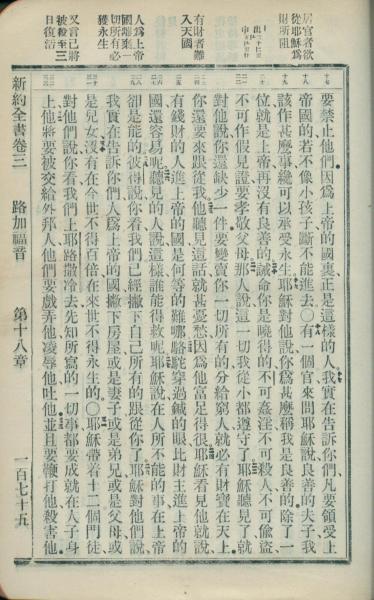 居官者欲
從耶穌爲
財所阻
有財者難
入天國
人爲上帝
國離棄一
切所有必
獲永生
又言己將
被殺至三
日復活
要禁止他們因爲上帝的國裏正是這樣的人我實在告訴你們凡要領受上
帝國的若不像小孩子斷不能進去〇有一個官來問耶穌說良善的夫子我
該作甚麼事纔可以承受永生耶穌對他說你爲甚麼稱我是良善的除了一
位就是上帝再沒有良善的誡命你是曉得的不可姦淫不可殺人不可偷盜
不可作假見證要孝敬父母那人說這一切我從小都遵守了耶穌聽見了就
對他說你還缺少一件要變賣你一切所有的分給窮人就必有財寶在天上
你還要來跟從我他聽見這話就甚憂愁因爲他富足得很耶穌看見他就說
有錢財的人進上帝的國是何等的難哪駱駝穿過鍼的眼比財主進上帝的
國還容易呢聽見的人說這樣誰能得救呢耶穌說在人所不能的事在上帝
卻是能的彼得說你看我們已經撇下自己所有的跟從你了耶穌對他們說
我實在告訴你們人爲上帝的國撇下房屋或是妻子或是弟兄或是父母或
是兒女沒有在今世不得百倍在來世不得永生的〇耶穌帶着十二個門徒
對他們說你看我們上耶路撒冷去先知所寫的一切事都要成就在人子身
上他將要被交給外邦人他們要戲弄他凌辱他吐他並且要鞭打他殺害他
新約全書卷三 路加福音 第十八章 一百七十五